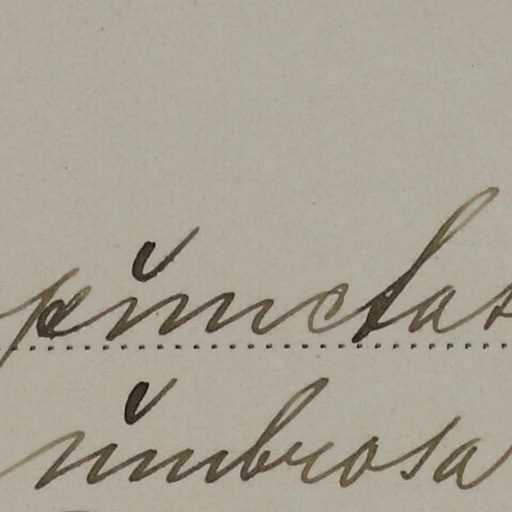 pŭnctat
ŭmbrosa